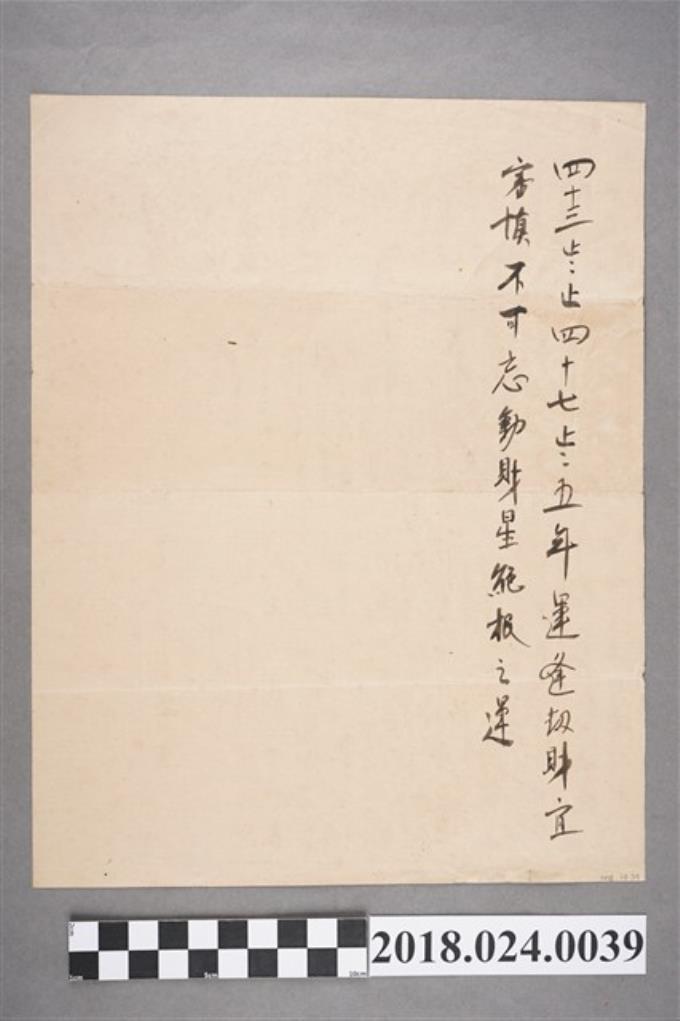 四十三歲止四十七歲五年運逢劫財宜
審慎不可忘動財星絕根之運
5cm
10cm
2018.024.0039